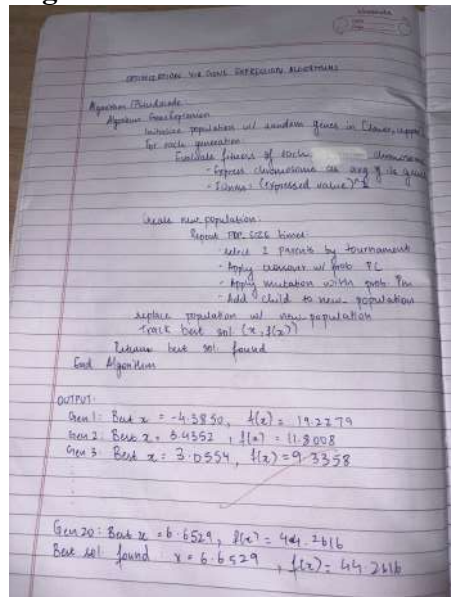 OPTIMIZATION VIA GENE EXPRESSION ALGORITHMS
Algorithm / Pseudocode
Algorithm GeneExpression
Initialize population w/ random genes in [lower, upper]
For each generation
Evaluate fitness of each chromosome
- Express chromosome as avg of its genes
- Fitness: (expressed value)^2
Create new population:
Repeat POP_SIZE times:
- select 2 parents by tournament
- Apply crossover w/ prob PC
- Apply mutation within prob Pm
- Add child to new population
replace population w/ new population
Track best sol (x, f(x))
Return best sol found
End Algorithm
OUTPUT:
Gen 1: Best x = -4.3850, f(x) = 19.2279
Gen 2: Best x = 3.4352, f(x) = 11.8008
Gen 3: Best x = 3.0554, f(x) = 9.3358
Gen 20: Best x = 6.6529, f(x) = 44.2616
Best sol found: x = 6.6529, f(x) = 44.2616